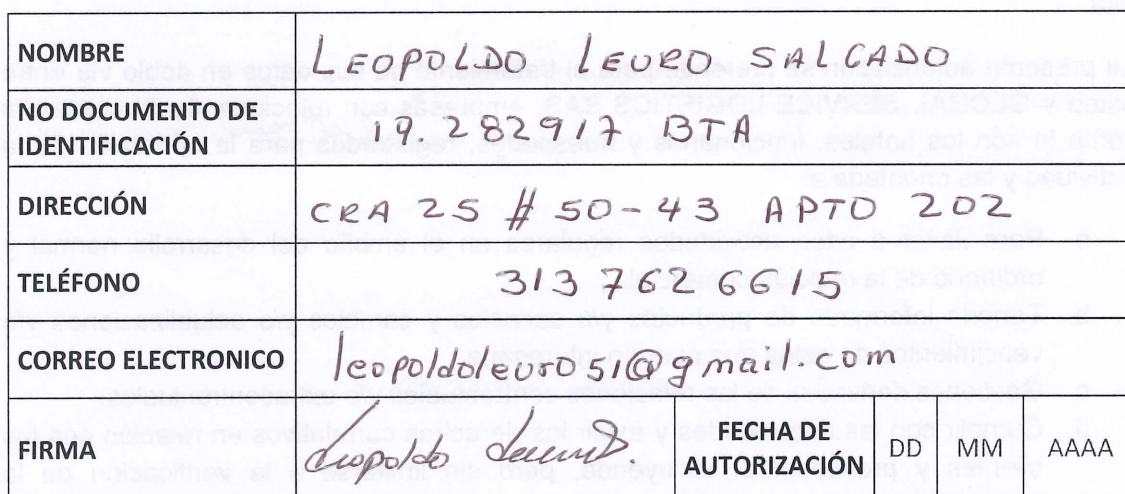 NOMBRE LEOPOLDO LEURO SALGADO
NO DOCUMENTO DE
IDENTIFICACIÓN 19.282917 BTA
DIRECCIÓN CRA 25 # 50-43 APTO 202
TELÉFONO 313 762 6615
CORREO ELECTRONICO leopoldoleuro51@gmail.com
FIRMA Leopoldo Leuro S. FECHA DE
AUTORIZACIÓN DD MM AAAA